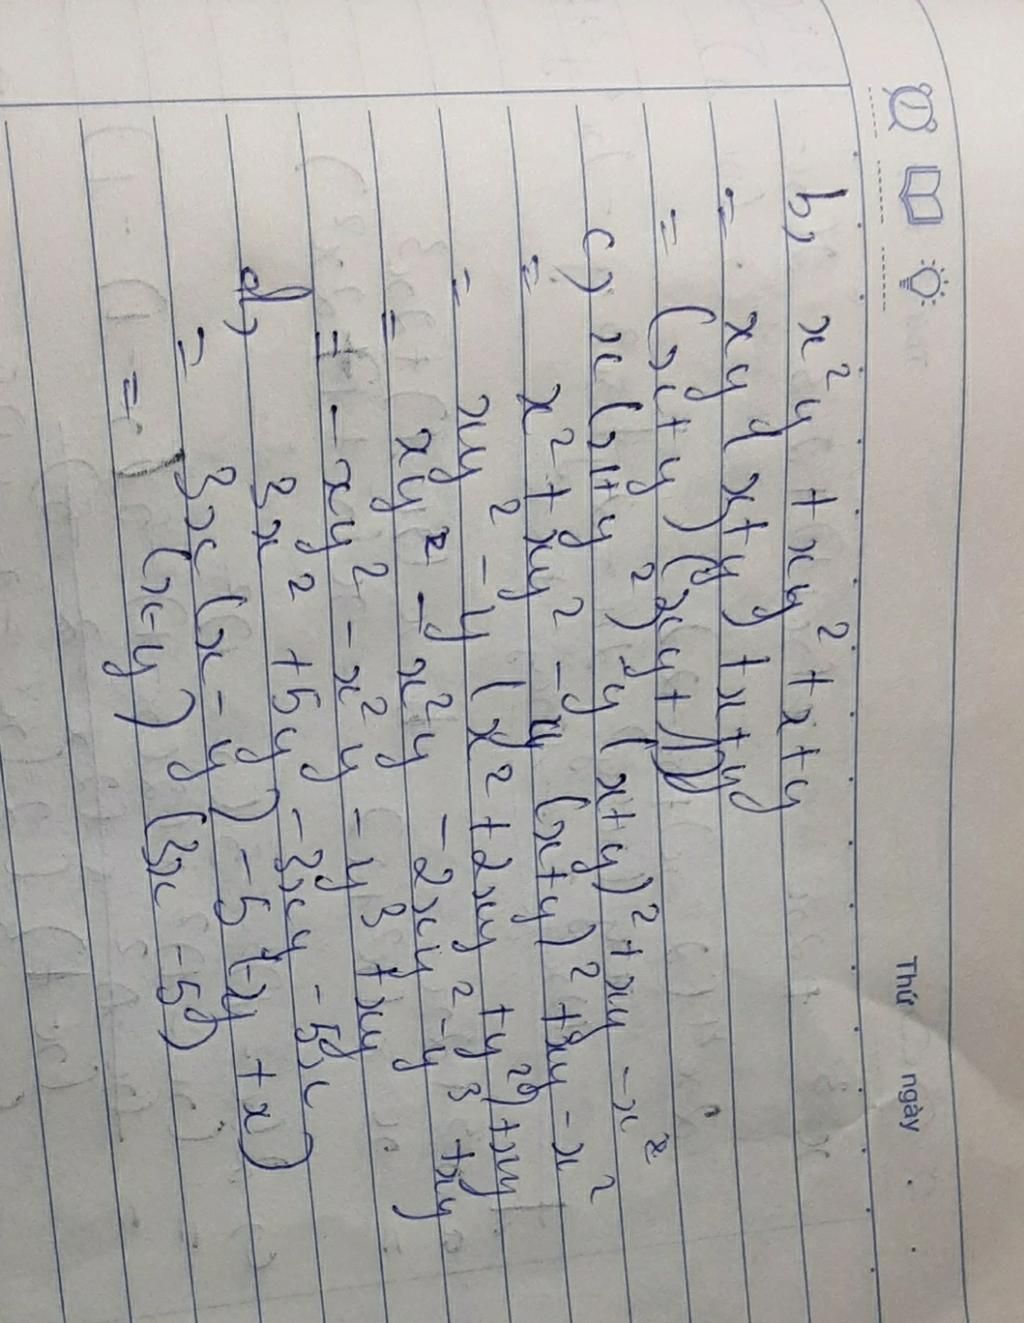 Thứ ngày
b, x²y + xy² + x + y
= xy (x+y) + x+y
= (x+y) (xy+1)
c, x(x+y²) - y (x+y)² + xy - x²
= x² + xy² - y (x+y)² + xy - x²
= xy² - y (x² + 2xy + y²) + xy
= xy² - x²y - 2xy² - y³ + xy
= - xy² - x²y - y³ + xy
d, 3x² + 5y - 3xy - 5x
= 3x (x - y) - 5 (-y + x)
= (x-y) (3x - 5)